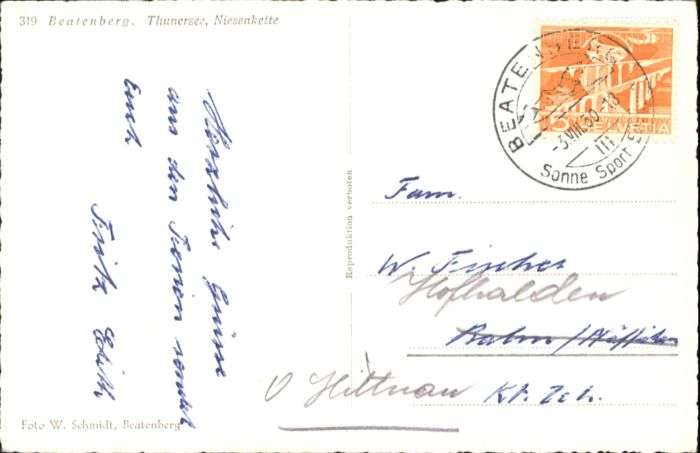 319 Beatenberg. Thunersee, Niesenkette
BEATENBERG
-3.VIII.50-18
Sonne Sport
5 HELVETIA
Herzliche Grüsse
aus den Ferien sendet
Euch
Fritz Edith
Reproduktion verboten
Fam.
W. Fischer
Hofhalden
Hittnau Kt. Zch.
Foto W. Schmidt, Beatenberg